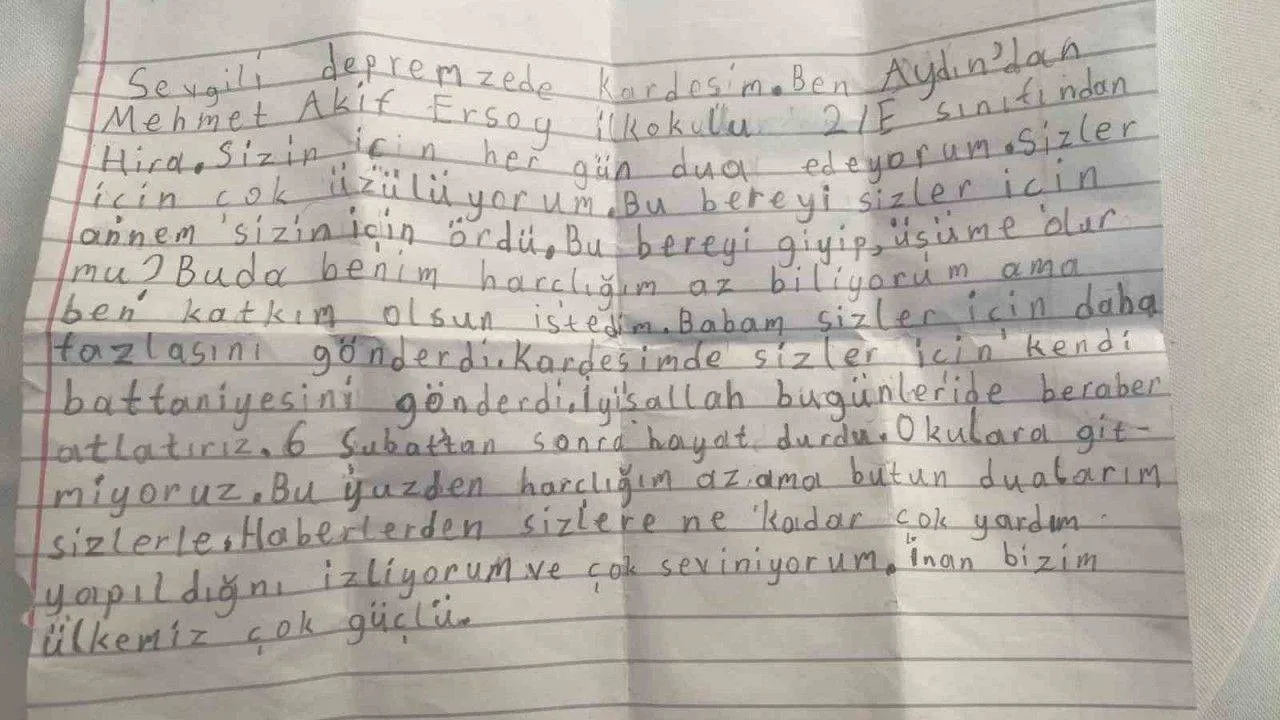 Sevgili depremzede kardesim. Ben Aydın'dan
Mehmet Akif Ersoy ilkokullu 2/E sınıfından
Hira. Sizin için her gün dua edeyorum. Sizler
icin cok üzülüyorum. Bu bereyi sizler icin
annem sizin için ördü. Bu bereyi giyip, üsüme olur
mu? Buda benim harclığım az biliyorum ama
ben katkım olsun istedim. Babam sizler icin daha
fazlasını gönderdi. Kardesimde sizler icin kendi
battaniyesini gönderdi. İyisallah bugünleride beraber
atlatırız. 6 Subattan sonra hayat durdu. Okulara git-
miyoruz. Bu yuzden harclığım az. ama butun dualarım
sizlerle. Haberlerden sizlere ne kadar cok yardım
yapıldığnı izliyorum ve çok seviniyorum. İnan bizim
ülkemiz çok güçlü.